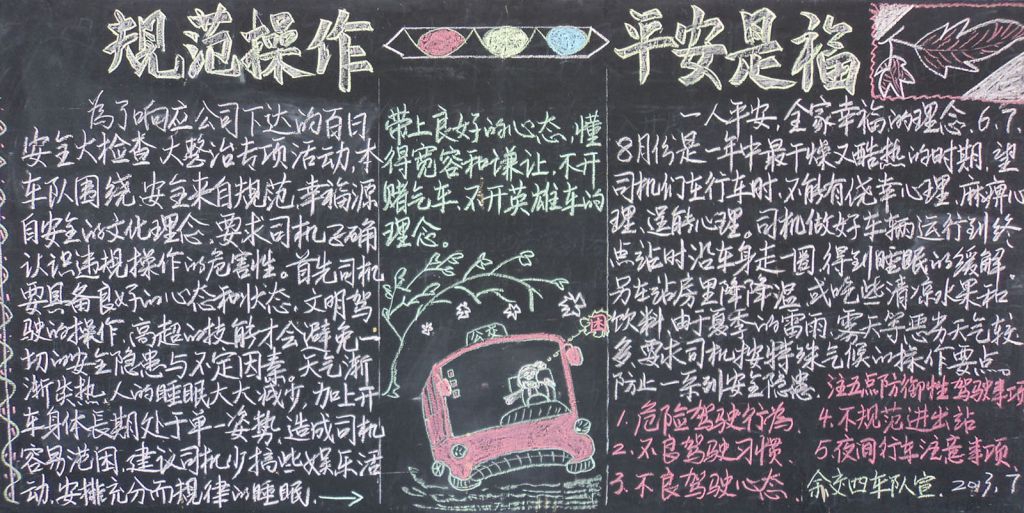 规范操作
平安是福
为了响应公司下达的百日
安全大检查,大整治专项活动,本
车队围绕,安全来自规范,幸福源
自安全的文化理念,要求司机正确
认识违规操作的危害性。首先司机
要具备良好的心态和状态,文明驾
驶的操作,高超的技能才会避免一
切的安全隐患与不定因素,天气渐
渐炎热,人的睡眠大大减少,加上开
车身体长期处于单一姿势,造成司机
容易范困,建议司机少搞些娱乐活
动,安排充分而规律的睡眠,→
带上良好的心态,懂
得宽容和谦让,不开
赌气车,不开英雄车的
理念。
一人平安,全家幸福的理念,6.7.
8月份是一年中最干燥又酷热的时期,望
司机们在行车时,不能有侥幸心理,麻痹心
理、逞能心理。司机做好车辆运行到终
点站时沿车身走一圈,得到睡眠的缓解。
另在站房里降降温,或吃些清凉水果和
饮料,由于夏季的雷雨,雾天等恶劣天气较
多,要求司机按特殊气候的操作要点。
防止一系列安全隐患。
注五点防御性驾驶事项
1.危险驾驶行为
2.不良驾驶习惯、
3.不良驾驶心态、
4.不规范进出站
5.夜间行车注意事项
余交四车队宣,2013.7